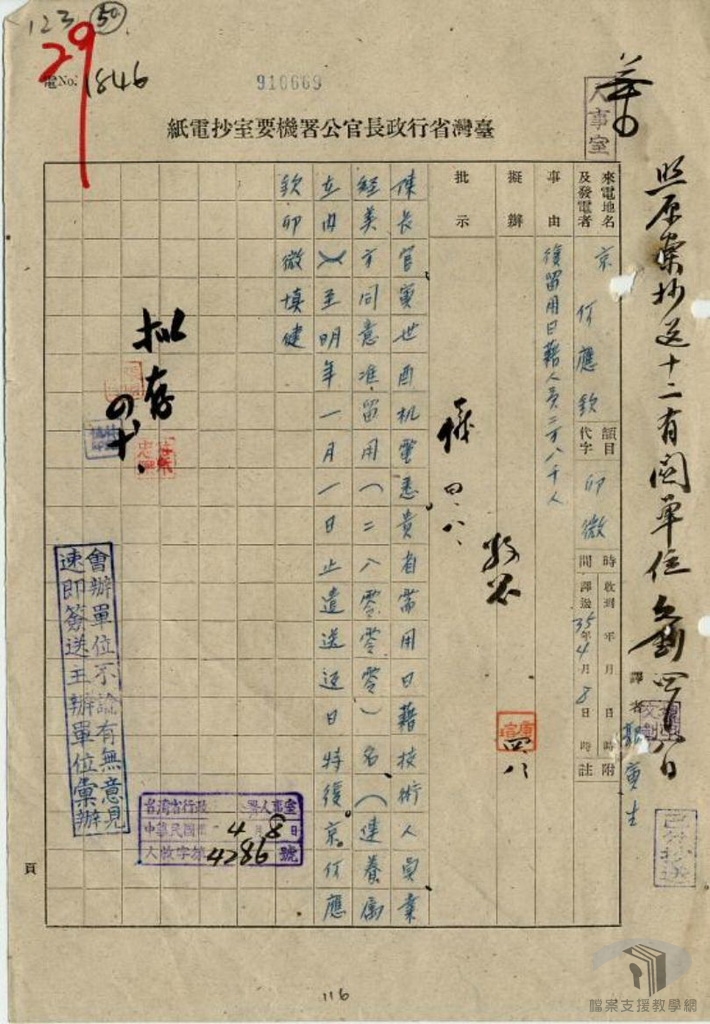 123 50
29
電No. 1846
910669
臺灣省行政長官公署機要室抄電紙
人事室
照原案抄送十二有關單位
來電地名及發電者
京 何應欽
韻目代字
卯微
時間
收到 年 月 日 時
譯訖 35年4月8日 時
附註
譯者
事由
復留用日籍人員二万八千人
擬辦
批示
四.八.
四八
陳長官寅世酉机電悉貴省需用日籍技術人員業
經美方同意准留用(二八零零零)名(連養屬
在內)至明年一月一日止遣送返日特復京何應
欽卯微填健
擬存
四十
會辦單位不論有無意見
速即簽送主辦單位彙辦
台灣省行政 公署人事室
中華民國 4月8日
人收字第4286號
已分抄送
頁
116
檔案支援教學網